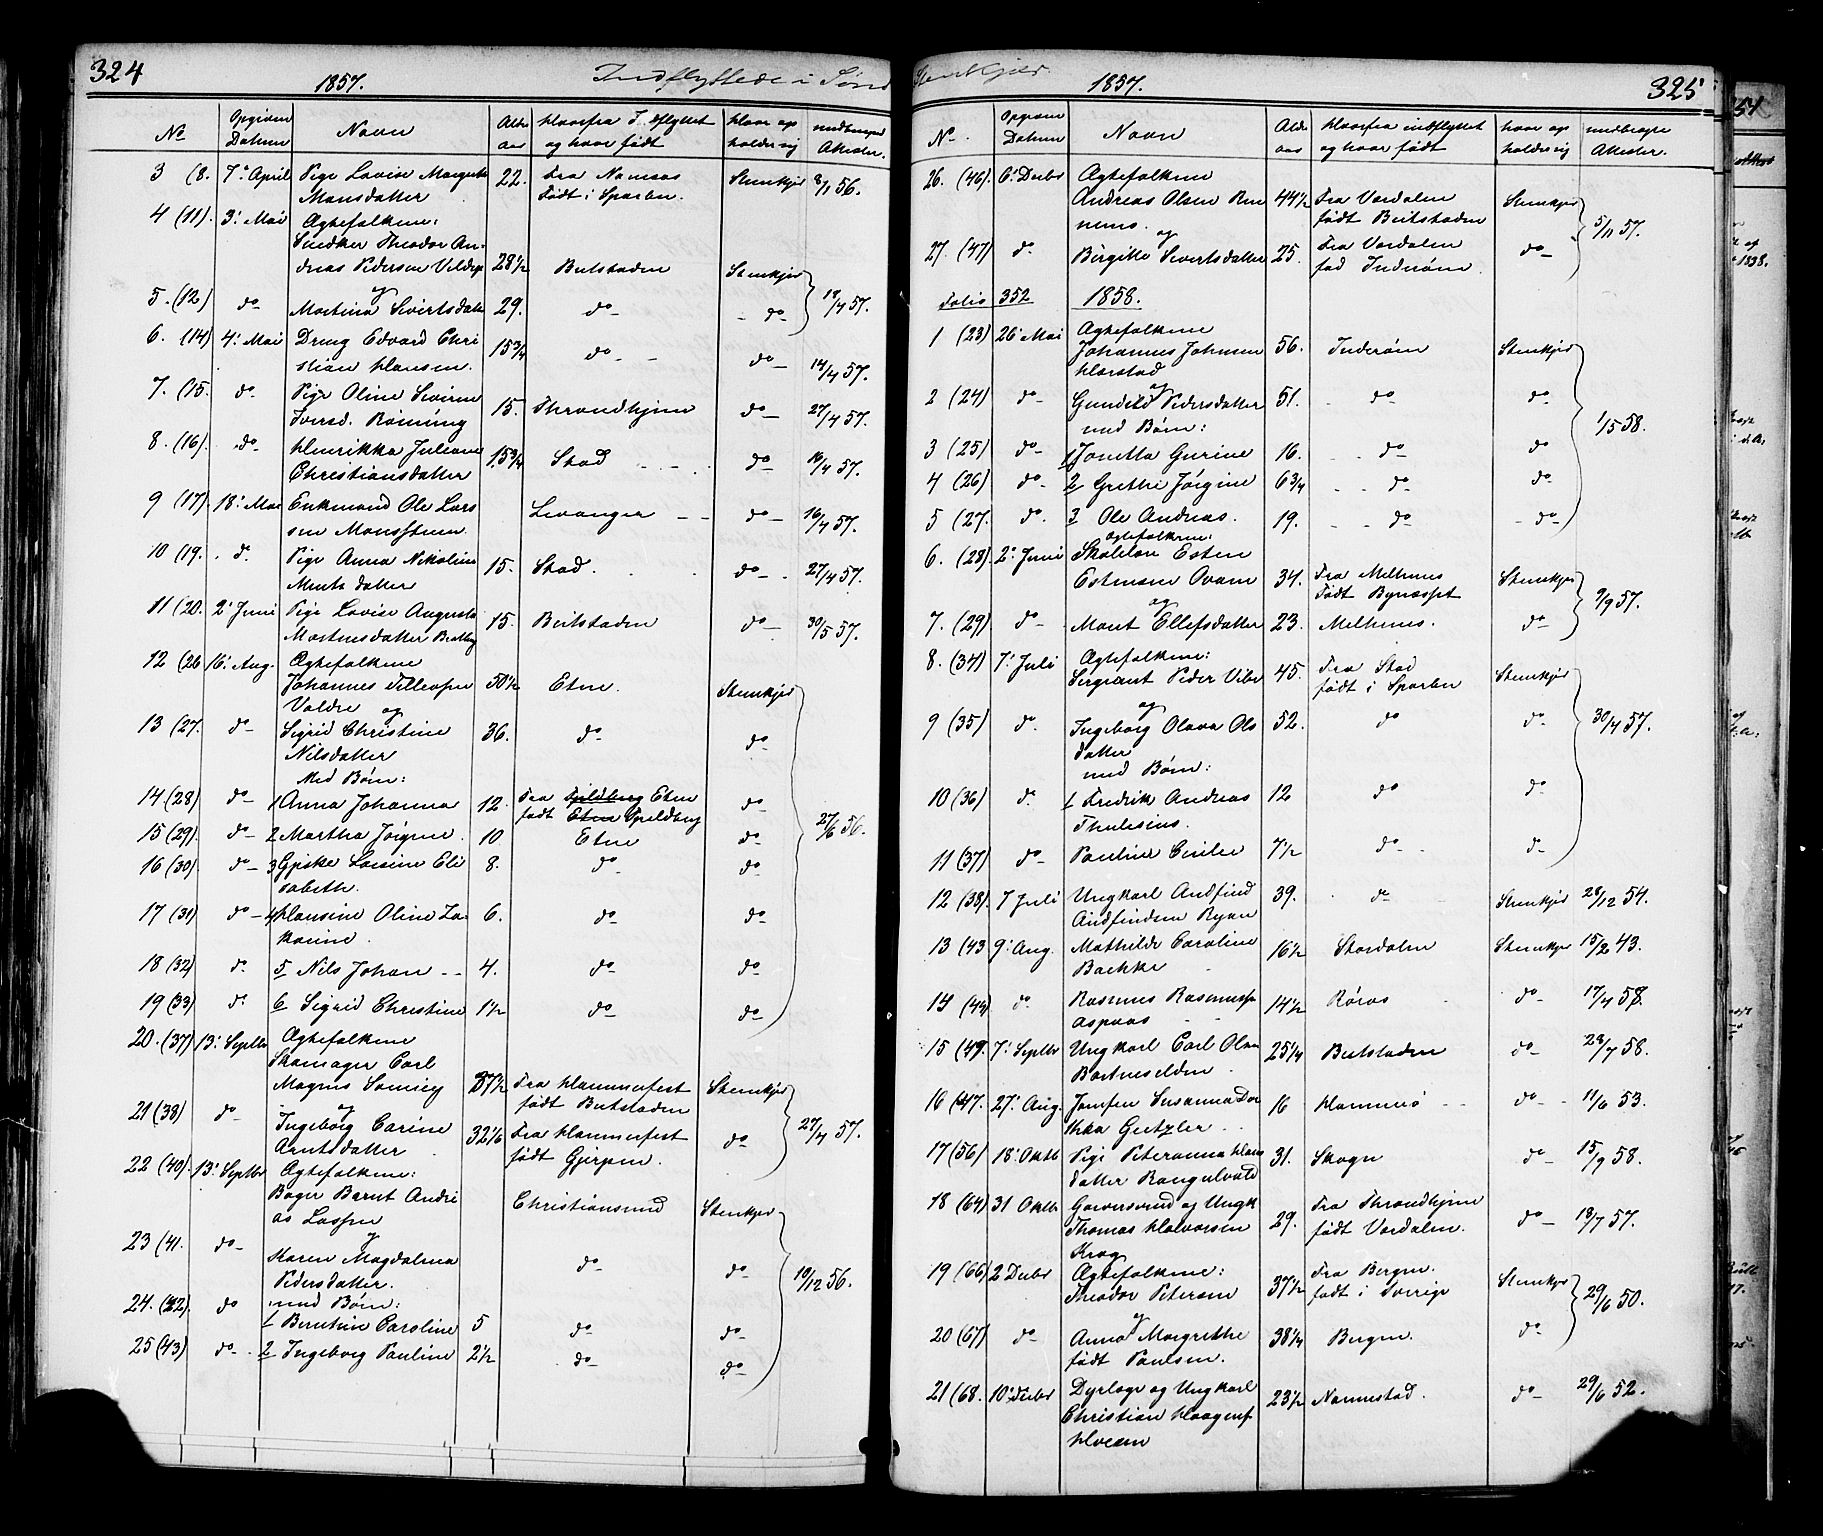 324
1857.
Indflyttede i Sønd
No
Opgiven Datum
Navn
Alder aar
hvorfra Indflyttet og hvor født
hvor op holder sig
medbragte Attester.
3 (8. 7de April Pige Lovise Margrete 22. Fra Namsos Stenkjær 8/1 56.
Monsdatter Født i Sparbu.
4 (11). 3. Mai Ægtefolkene:
Snedker Theodor An-
dreas Pedersen 28 1/2 Beitstaden Stenkjær
og 19/4 57.
5. (12) do Martina Sivertsdatter 29. do do
6. (14) 4. Mai Dreng Edvard Chri 15 3/4 do do 14/4 57.
stian Hansen.
7. (15. do. Pige Oline Sivrine 15. Throndhjem do 27/4 57.
Iversd. Røming
8. (16). do Henrikka Juliane 15 3/4 Stod do 16/4 57.
Christiansdatter
9 (17). 18. Mai Enkemand Ole Lars Levanger do 16/4 57.
sen Monsstuen
10 (19. do. Pige Anna Nikoline 15. Stod. do 27/4 57.
Mentsdatter
11 (20. 2. Juni Pige Lovise Augusta 15. Beitstaden do 30/5 57.
Mortensdatter Bratberg
12 (26 16. Aug. Ægtefolkene
Johannes Tollefsen 50 1/2 Etne. Stenkjær
Valdre og
13 (27. do Sigrid Christine 36. do do
Nilsdatter
Med Børn:
14. (28) do 1 Anna Johanna 12. Fra Etne do
født Spildberg
15 (29). do 2 Martha Jørgine. 10 Etne do 27/6 56.
16 (30) do 3 Gjeske Lovine Eli 8. do do
sabeth.
17 (31) do 4 Hansine Oline La 6. do do
18 (32) do 5 Nils Johan 4. do do
19 (33) do 6 Sigrid Christine 1 1/2 do do
20. (37) 13. Septbr Ægtefolkene
Skomager Carl
Magnus 37 1/2 Fra Hammerfest Stenkjær
og født Beitstaden 27/4 57.
21 (38) do Ingeborg Carine 32 1/6 Fra Hammerfest do
Arntsdatter født Gjerpen.
22 (40). 13. Septbr Ægtefolkene:
Bager Bernt Andre Christiansund Stenkjær
as Lassen
23 (41. do og
Karen Magdalena do do
Pedersdatter. 10/12 56.
med Børn:
24. (42). do 1 Berntine Caroline 5 do do
25 (43) do 2 Ingeborg Pauline 2 1/2 do do
Stenkjær.
1857.
325
No.
Opgiven Datum
Navn
Alder aar
hvorfra indflyttet og hvor født
hvor op holder sig
medbragte Attester.
26. (46). 6. Decbr Ægtefolkene
Andreas Olsen Ren 44 1/2 Fra Værdalen Stenkjær
nemo. født Beitstaden 5/11 57.
og
27. (47) do. Birgitte Sivertsdatter 25. Fra Værdalen do
fød Inderøen.
Folio 352 1858.
1 (23) 26 Mai Ægtefolkene
Johannes Johnsen 56. Inderøen Stenkjær
Harstad
og
2 (24) do Gunhild Pedersdatter 51. do do
med Børn: 1/5 58.
3 (25) do 1 Jonetta Gurine 16. do do
4 (26) do 2 Grethe Jørgine 6 3/4 do do
5 (27. do. 3 Ole Andreas. 19. do do
Ægtefolkene:
6. (28). 2. Juni Skolelær Esten
Estensen 34. Fra Melhuus Stenkjær
og Født Bynæsset 9/9 57.
7. (29) do Marit Ellefsdatter 23. Melhuus. do
8. (34) 7. Juli Ægtefolkene:
Sergeant Peder Vibe 45. Fra Stod Stenkjær
født i Sparbu
og
9 (35) do. Ingeborg Olava Ols 52. do do 30/4 57.
datter
med Børn:
10 (36) do. 1 Fredrik Andreas 12 do do
Thulesius.
11 (37) do Pauline Cecilie 7 1/2 do do
12 (38). 7 Juli Ungkarl Andfind 39. do Stenkjær 28/12 54.
Andfindsen Ryan
13 (43 9. Aug. Mathilde Caroline 16 1/2 Størdalen Stenkjær 15/2 43.
Bachke
14 (44) do. Rasmus Rasmussen 14 1/2 Røros do 17/4 58.
Aspaas
15 (49. 7. Septbr Ungkarl Carl Olsen 25 1/4 Beitstaden do 23/7 58.
16 (47. 27. Aug. Jomfru Susanna Do 16 Hammerø do 11/6 53.
17 (56) 18. Oktb Pige Peteranna Hans 31. Skogn do 15/9 58.
datter
18 (64) 31 Oktb Garversvend og Ungk 29. Fra Throndhjem do 18/7 57.
Thomas Halvorsen født Værdalen.
Krog
19 (66) 2 Decbr Ægtefolkene: 37 1/2 Fra Bergen. Stenkjær
Theodor Petersen født i Sverige
og 29/6 50.
20 (67) do Anna Margrethe 38 1/4 Bergen. do
født Paulsen.
21 (68. 10. Decbr Dyrlæge og Ungkarl 23 1/2 Nannestad. do 29/6 52.
Christian